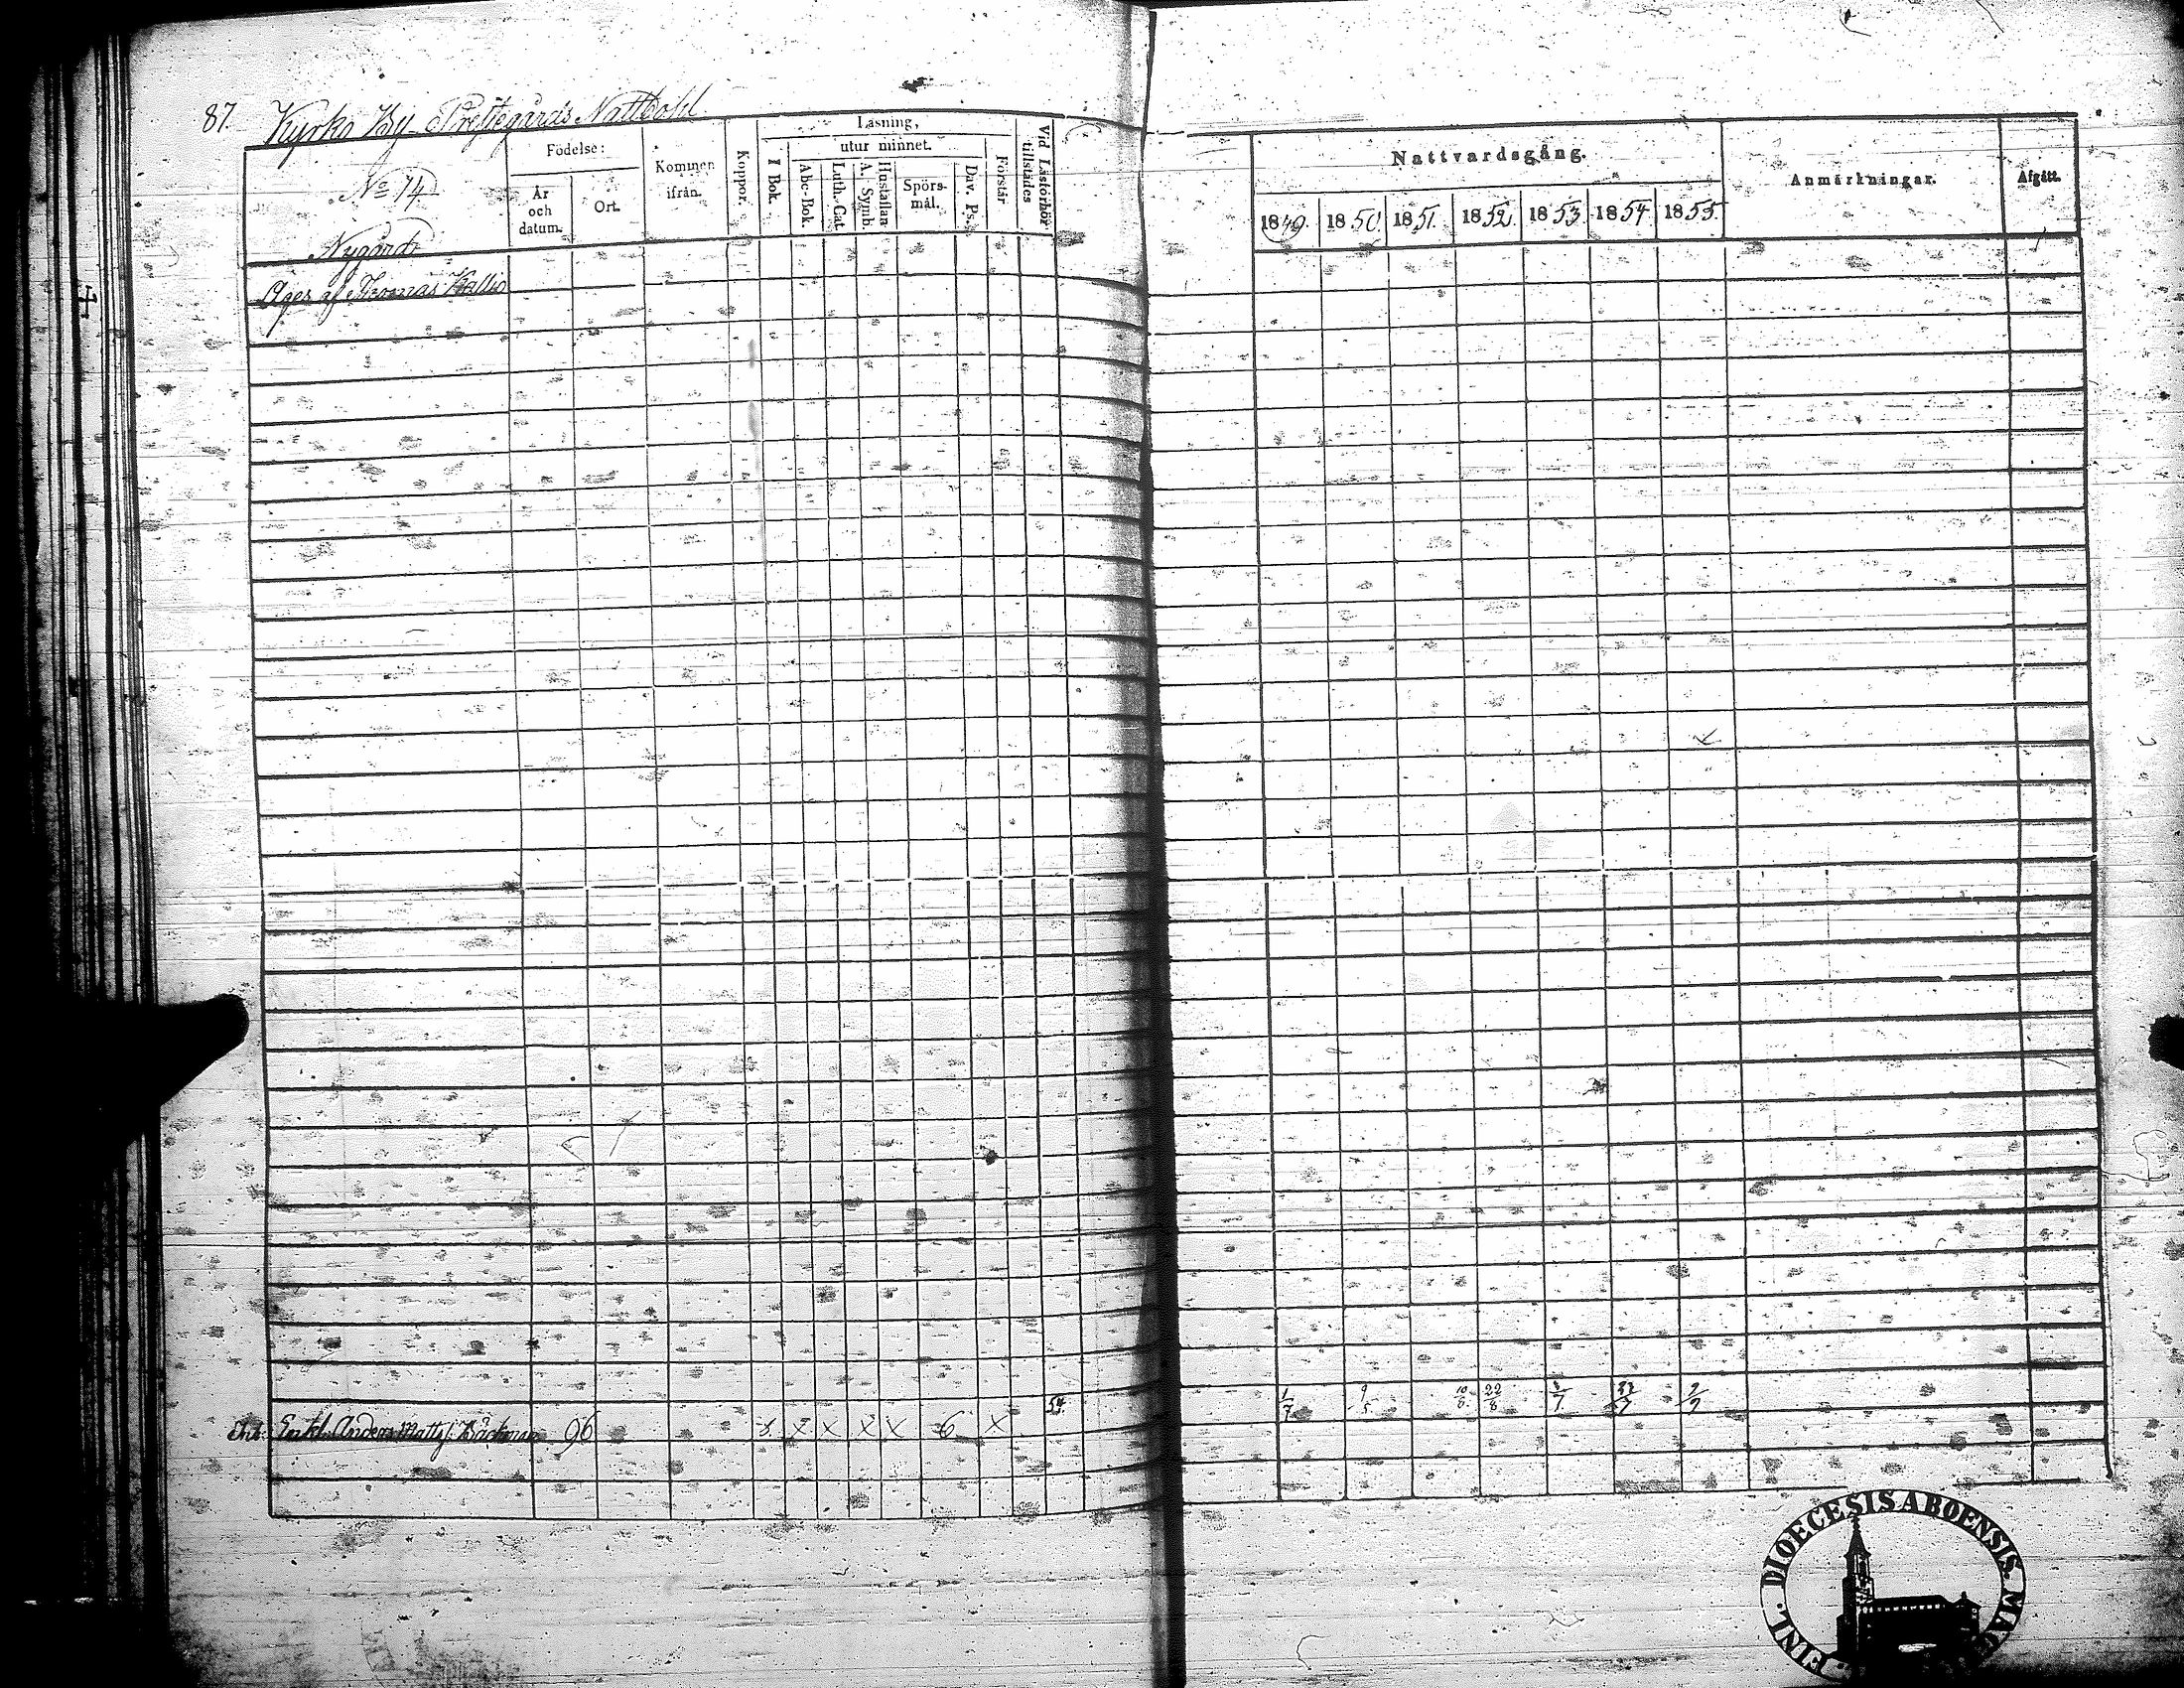 87. Kyrko By Prestegårds Nattbohl
Läsning,
Födelse:
utur minnet.
Nattvardsgång.
No 14
År och datum.
Ort.
Kommen ifrån.
Koppor.
I Bok.
Abc-Bok.
Luth.-Cat
A. Symb.
Hustaflan
Spörs-mål.
Dav. Ps.
Förstår
Vid Läsförhör tillstädes
Anmärkningar.
Afgått.
1849. 1850. 1851. 1852. 1853. 1854. 1855.
Nygård
Äges af Thomas Kallio
54. 1/7 9/5 10/8 22/8 3/7 23/7 9/7
Enk: Anders Matts: Bäckman 96 x x x x x 6 x
FINL. DIOECESIS ABOENSIS. MAG